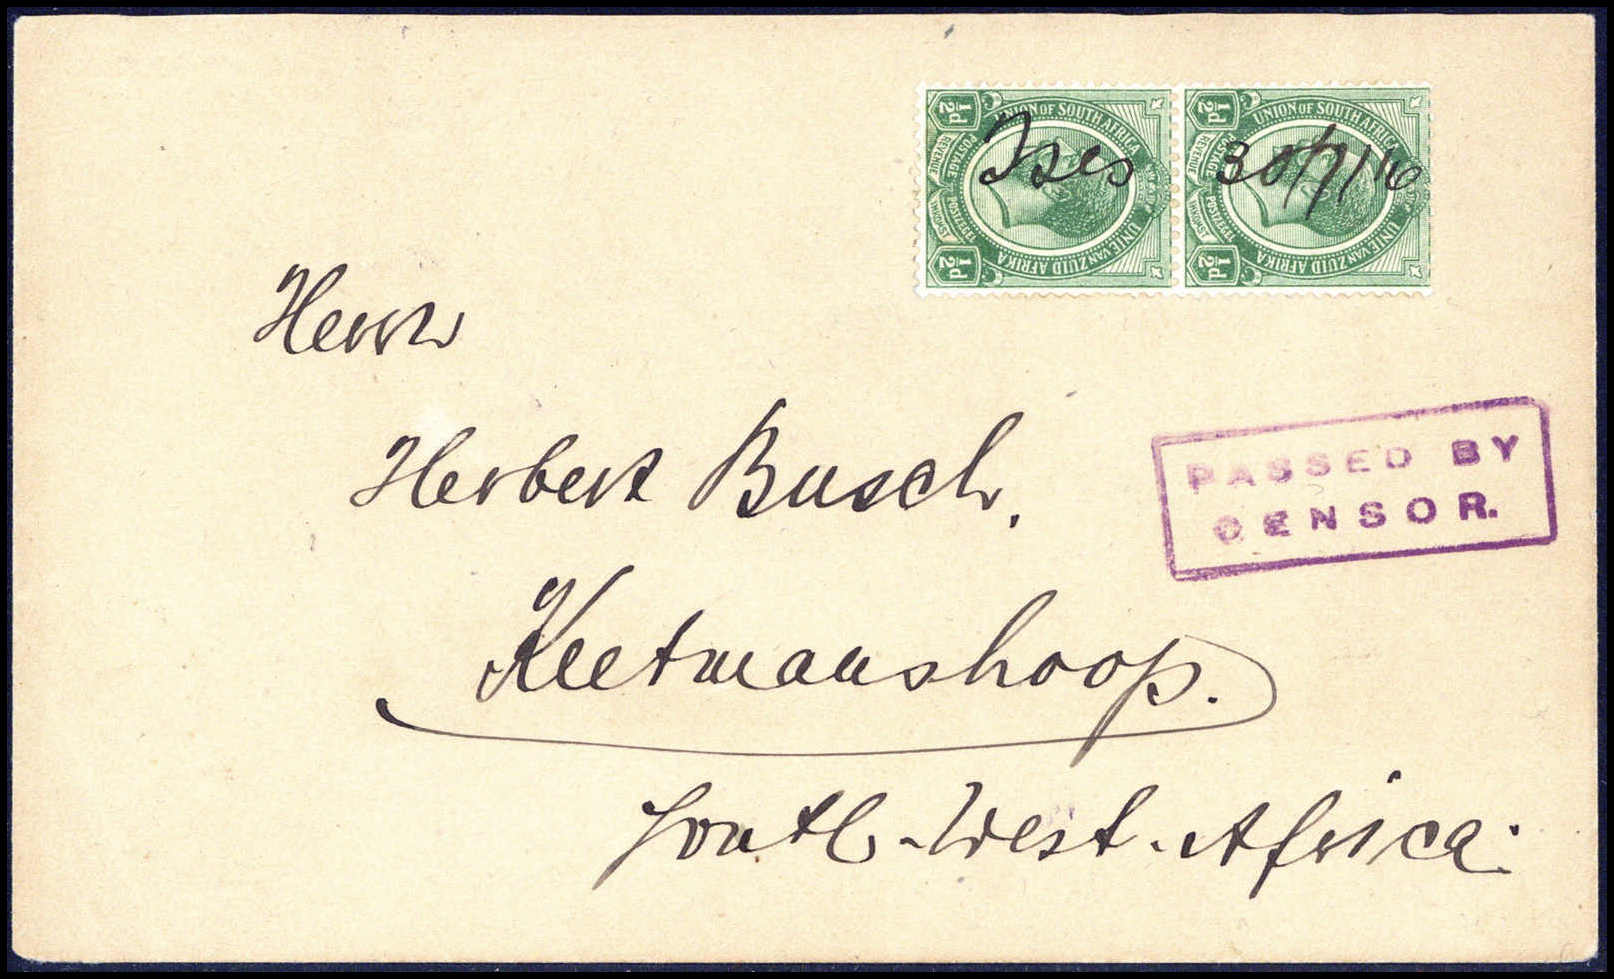 ½d UNION OF SOUTH AFRICA POSTAGE REVENUE POSTZEGEL INKOMST UNIE VAN ZUID AFRIKA ½d
½d UNION OF SOUTH AFRICA POSTAGE REVENUE POSTZEGEL INKOMST UNIE VAN ZUID AFRIKA ½d
Ises 30/7/16
Herrn
Herbert Busch.
PASSED BY
CENSOR.
Keetmanshoop.
South-West-Africa.